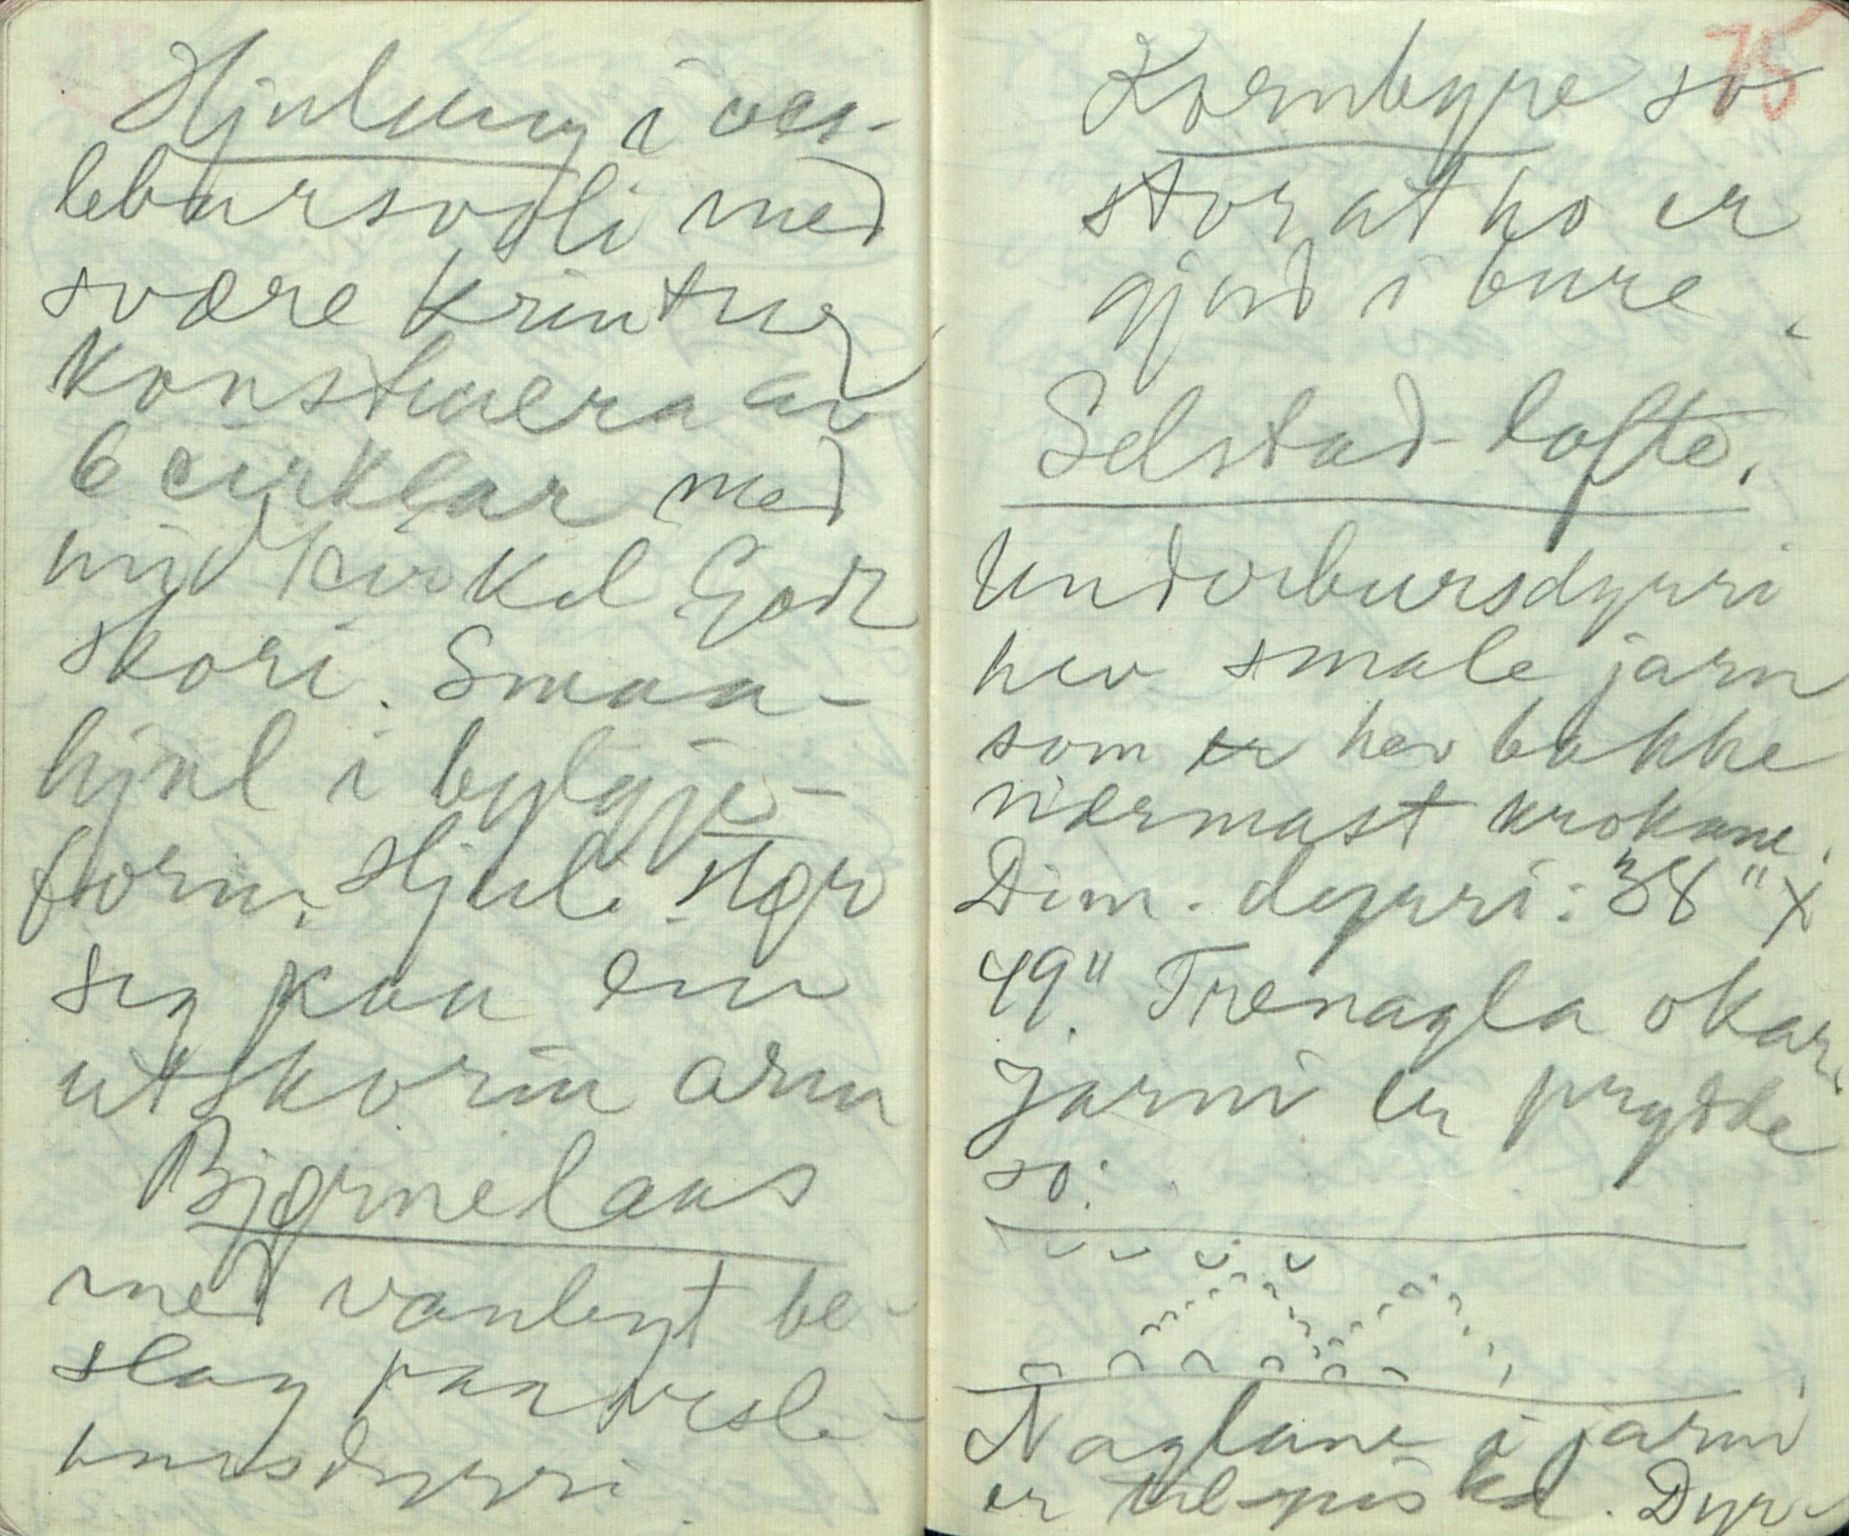 Hjulung i ves-
lebursvoli med
svære krintur
konstruera av
6 cirklar med
midtcirkel. God
skori. Smaa-
hjul i bylgje-
form. Hjuli
seg paa ein
utskorin arm
Bjørnelaas
med vanlegt be-
slag paa vesle-
bursdyrri.
75
Kornbyre so
stor at ho er
gjord i bure.
Selstad-lofte.
Underbursdyrri
hev smale jarn
som er hev bakke
nærmast krokane.
Dim. dyrri: 38" x
49". Trenagla okar.
Jarni er prydde
so:
Naglane i jarni
er Dyr-